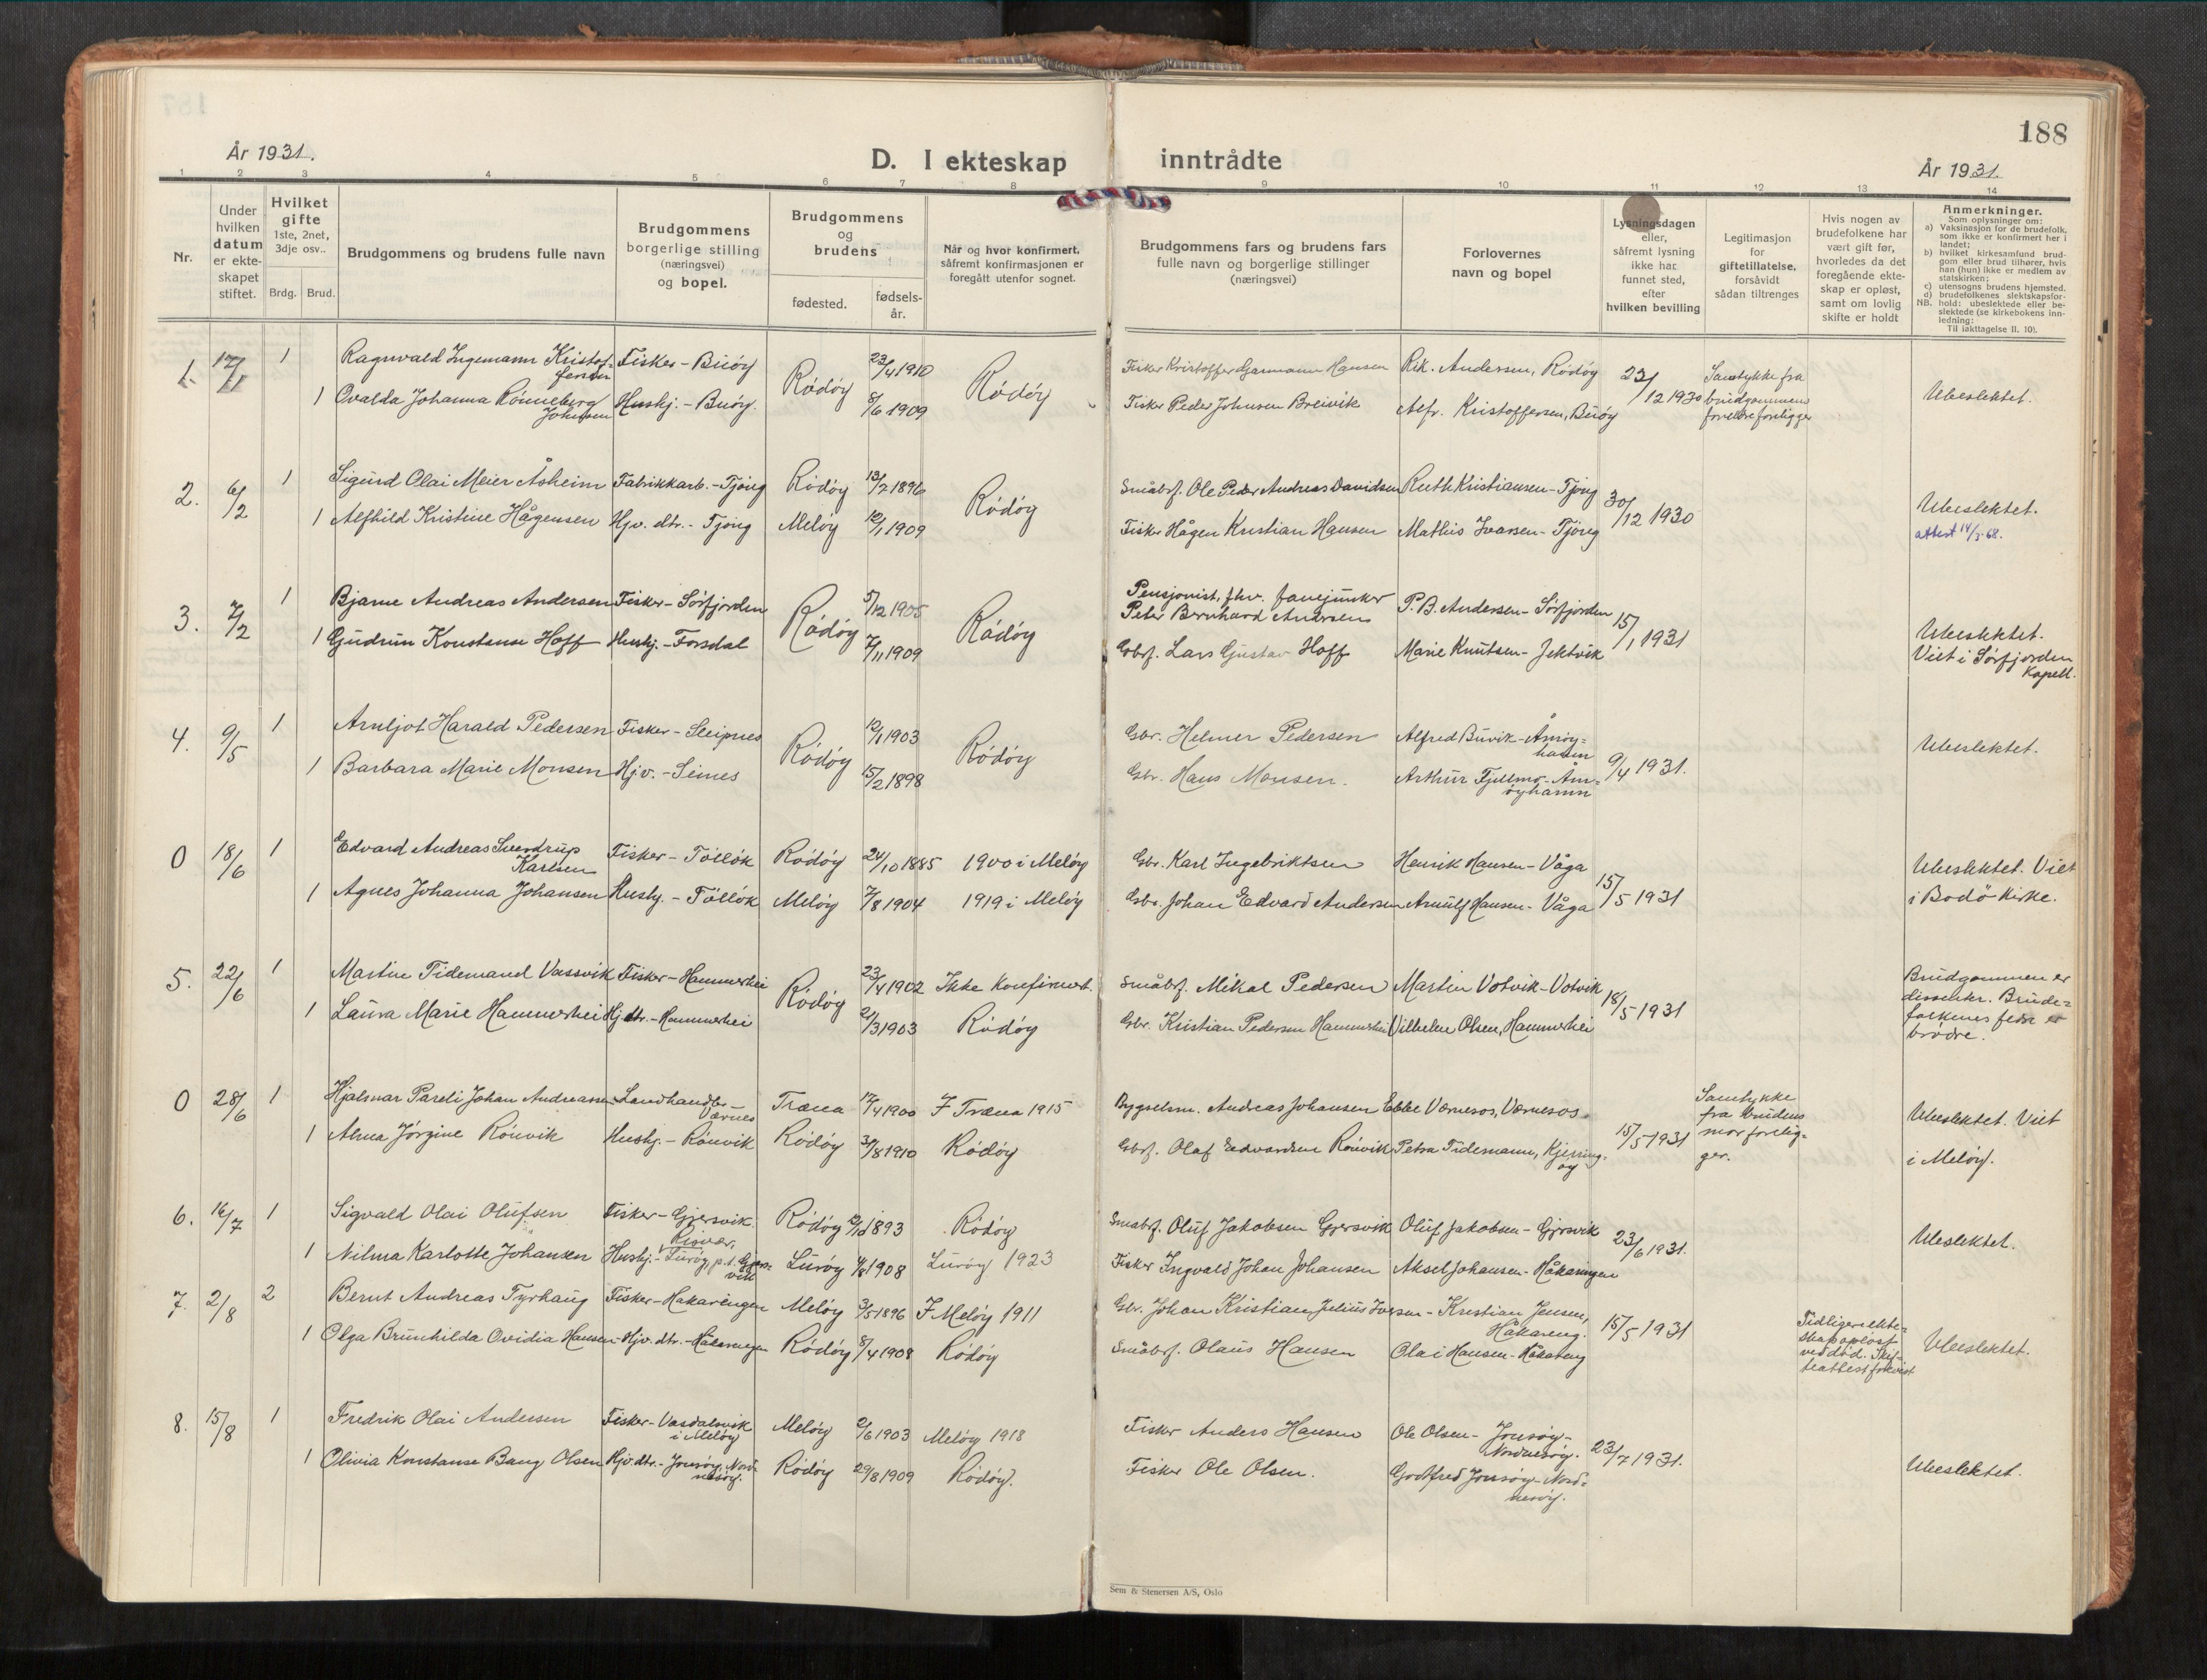 188
År 1931.
D. I ekteskap inntrådte
År 1931.
1 2 3 4 5 6 7 8 9 10 11 12 13 14
Nr.
Under hvilken datum er ekteskapet stiftet.
Hvilket gifte
1ste, 2net, 3dje osv..
Brdg. Brud.
Brudgommens og brudens fulle navn
Brudgommens borgerlige stilling (næringsvei) og bopel.
Brudgommens og brudens
fødested. fødselsår.
Når og hvor konfirmert, såfremt konfirmasjonen er foregått utenfor sognet.
Brudgommens fars og brudens fars fulle navn og borgerlige stillinger (næringsvei)
Forlovernes navn og bopel
Lysningsdagen eller, såfremt lysning ikke har funnet sted, efter hvilken bevilling
Legitimasjon for giftetillatelse, forsåvidt sådan tiltrenges
Hvis nogen av brudefolkene har vært gift før, hvorledes da det foregående ekteskap er opløst, samt om lovlig skifte er holdt
Anmerkninger.
Som oplysninger om:
a) Vaksinasjon for de brudefolk, som ikke er konfirmert her i landet;
b) hvilket kirkesamfund brudgom eller brud tilhører, hvis han (hun) ikke er medlem av statskirken;
c) utensogns brudens hjemsted.
d) brudefolkenes slektskapsforhold: ubeslektede eller beslektede (se kirkebokens innledning:
NB. Til iakttagelse II. 10).
1. 17/1 1 Ragnvald Ingemann Kristoffersen Fisker - Buøy Rödöy 23/4 1910 Rödöy Fisker Kristoffer Garmann Hansen Rik. Andersen, Rödöy 23/12 1930 Samtykke fra brudgommens foreldre foreligger Ubeslektet.
1 Ovalda Johanna Rönneberg Johnsen Huskj. - Buöy. 8/6 1909 Fisker Peder Johnsen Breivik Alfr. Kristoffersen, Buöy
2. 6/2 1 Sigurd Olai Meier Åsheim Fabrikkarb. - Tjong Rödöy 13/2 1896 Rödöy Småbrf. Ole Peder Andreas Davidsen Ruth Kristiansen - Tjong 30/12 1930 Ubeslektet.
1 Alfhild Kristine Hågensen Hjv. dtr. - Tjong Melöy 12/1 1909 Fisker Hågen Kristian Hansen Mathis Ivarsen - Tjong attest 14/3-68.
3. 7/2 1 Bjarne Andreas Andersen Fisker - Sörfjorden Rödöy 5/12 1905 Rödöy Pensjonist, fhv. fanejunker Peter Bernhard Andersen P. B. Andersen - Sörfjorden 15/1 1931 Ubeslektet.
1 Gudrun Konstanse Hoff Huskj. - Forsdal 7/11 1909 Gbrf. Lars Gustav Hoff Marie Knutsen - Jektvik Viet i Sörfjorden Kapell.
4. 9/5 1 Arnljot Harald Pedersen Fisker - Sleipnes Rödöy 12/1 1903 Rödöy Gbr. Helmer Pedersen Alfred Buvik - Åmöyhamn 9/4 1931. Ubeslektet.
1 Barbara Marie Monsen Hjv. - Seines 15/2 1898 Gbr. Hans Monsen. Arthur Fjellmo - Åmöyhamn
0 18/6 1 Edvard Andreas Sverdrup Karlsen Fisker - Töllök Rödöy 24/10 1885 1900 i Melöy Gbr. Karl Ingebriktsen Henrik Hansen - Våga 15/5 1931 Ubeslektet. Viet
1 Agnes Johanna Johansen Huskj. - Töllök Melöy 7/8 1904 1919 i Melöy Gbr. Johan Edvard Andersen Arnulf Hansen - Våga i Bodö kirke.
5. 22/6 1 Martin Tidemand Vassvik Fisker - Hammerhei Rödöy 23/4 1902 Ikke konfirmert. Småbrf. Mikal Pedersen Martin Votvik - Votvik 18/5 1931 Brudgommen er dissenter. Brudefolkenes fedre er brödre.
1 Laura Marie Hammerhei Hj. dtr. - Hammerhei 21/3 1903 Rödöy Gbr. Kristian Pedersen Hammerhei Vilhelm Olsen, Hammerhei
0 28/6 1 Hjalmar Pareli Johan Andreassen Landhandler Værnes Træna 17/4 1900 I Træna 1915 Bygselsm. Andreas Johansen Ebbe Værnesos, Værnesos. 15/5 1931 Samtykke fra brudens mor foreligger. Ubeslektet. Viet
1 Alma Jörgine Rönvik Huskj. - Rönvik Rödöy 31/8 1910 Rödöy Gbrf. Olaf Edvardsen Rönvik Petra Tidemann, Kjerringöy i Melöy.
6. 16/7 1 Sigvald Olai Olufsen Fisker - Gjersvik. Rödöy 1893 Rödöy Småbrf. Oluf Jakobsen Gjersvik Oluf Jakobsen - Gjersvik 23/6 1931. Ubeslektet.
1 Nilma Karlotte Johansen Huskj. - Kisvær, Luröy, p.t. Gjersvik Luröy 4/8 1908 Luröy 1923 Fisker Ingvald Johan Johansen Aksel Johansen - Håkaringen
7. 2/8 2 Bernt Andreas Tyrhaug Fisker - Håkaringen Melöy 3/5 1896 I Melöy 1911 Gbr. Johan Kristian Julius Iversen - Kristian Jensen, Håkareng. 15/5 1931 Tidligere ekteskap opløst ved död. Skifteattest forevist Ubeslektet.
1 Olga Brunhilda Ovidia Hansen - Hjv. dtr. - Håkaringen Rödöy 8/4 1908 Rödöy Småbrf. Olaus Hansen Olai Hansen - Håkareng
8. 15/8 1 Fredrik Olai Andersen Fisker - Vasdalsvik i Melöy Melöy 2/6 1903 Melöy 1918 Fisker Anders Hansen Ole Olsen - Jonsöy - Nordnesöy. 23/7 1931. Ubeslektet.
1 Olivia Konstanse Bang Olsen Hjv. dtr. - Jonsöy, Nordnesöy. Rödöy 29/8 1909 Rödöy. Fisker Ole Olsen. Godtfred Jonsöy - Nordnesöy.
Sem & Stenersen A/S, Oslo